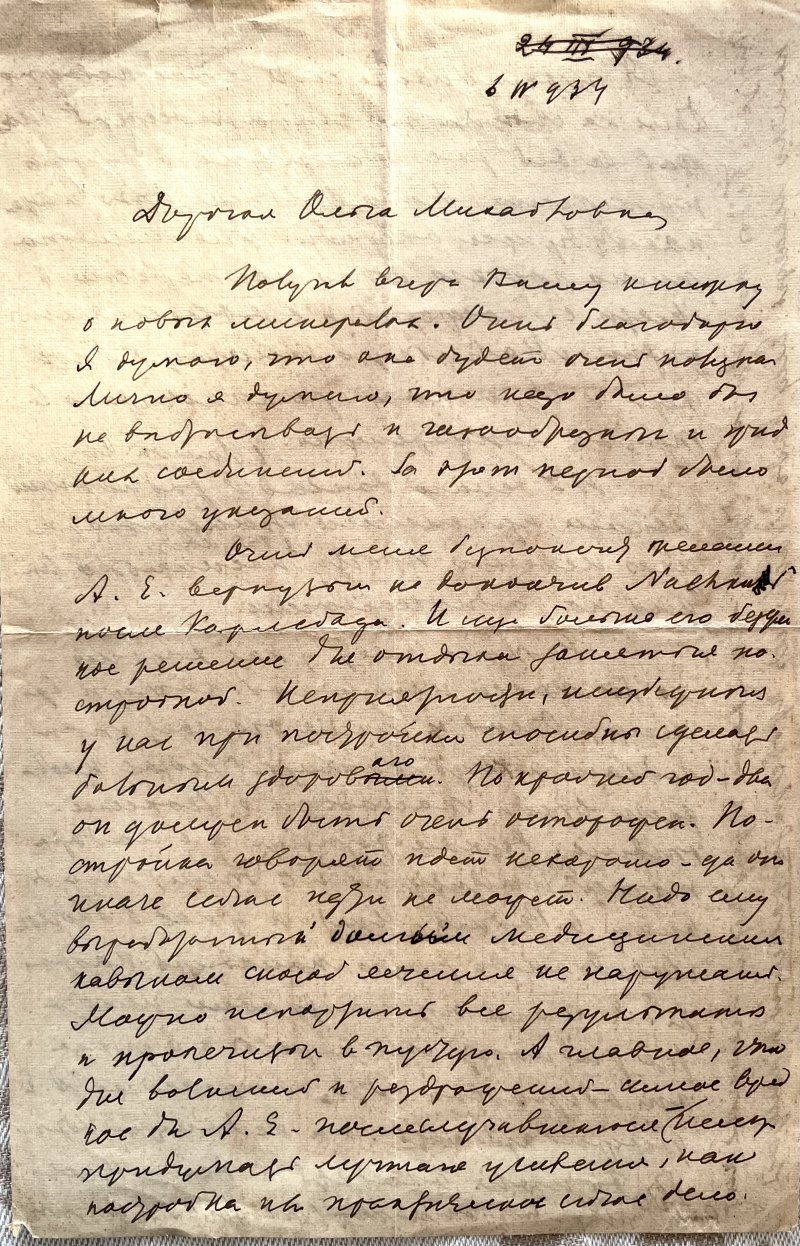 24 III 934.
6 IV 934
Дорогая Ольга Михайловна
Получил вчера Вашу книжку
о новых минералах. Очень благодарю
Я думаю, что она будет очень полезна
Лично я думаю, что надо было бы
не выбрасывать и газообразных и жид
ких соединений. За этот период было
много указаний.
Очень меня беспокоит решение
А. Е. вернуться не докончив Nachkur
после Карлсбада. И еще больше его
ное решение для отдыха заняться по-
стройкой. Неприятности, неизбежные
у нас при постройке способны сделать
больным здорового. По крайней год-два
он должен быть очень осторожен. По-
стройка говорят идет нехорошо – да он
иначе сейчас идти не может. Надо ему
выработанный долгим медицинским
навыком способ лечения не нарушать.
Можно испортить все результаты
и пролечиться впустую. А главное, что
для волнений и раздражений – самое вред
ное для А. Е. – после случившегося (нельзя
придумать лучшего условия, как
постройка или практическое сейчас дело.